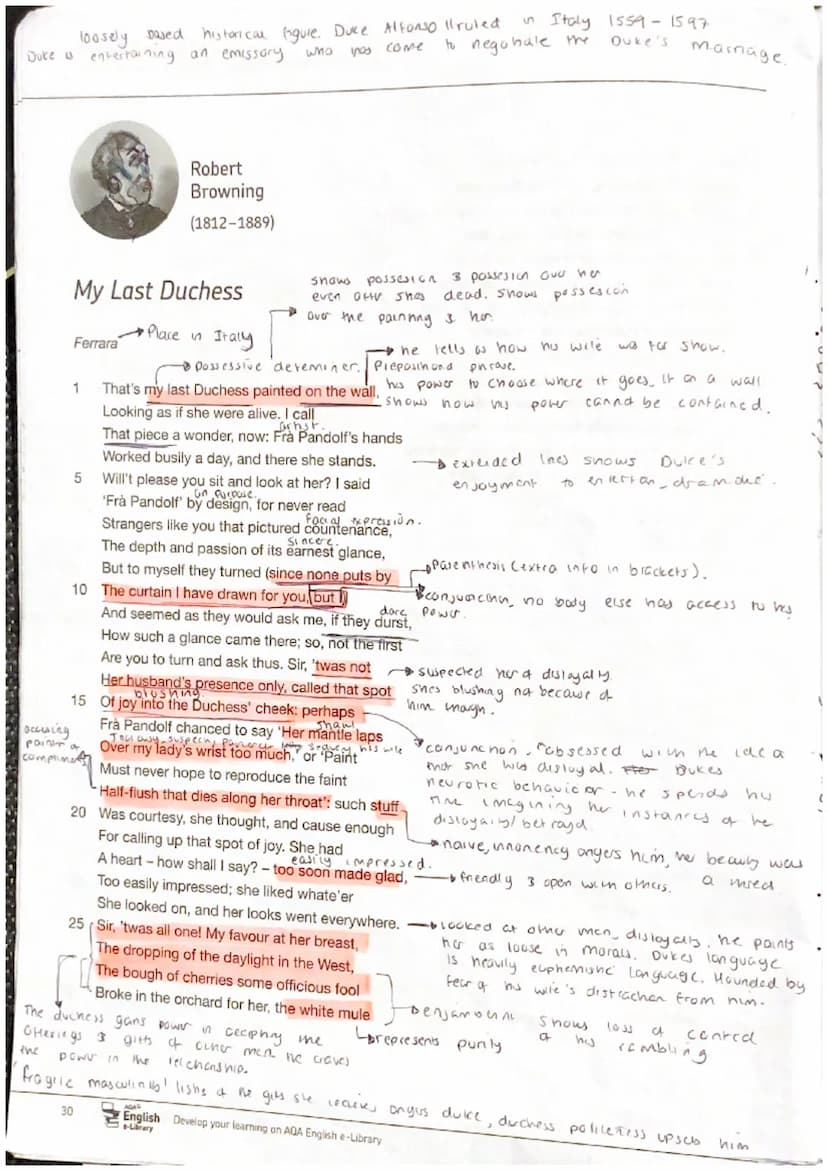 loosely based historical figure. Duke Alfonso II ruled in Italy 1559 - 1597
Duke is entertaining an emissary who has come to negotiate the Duke's Marriage.
Robert
Browning
(1812–1889)
shows possesion & possesion over her
even after shes dead. Shows possesion
over the painting & her.
My Last Duchess
Ferrara
Place in Itally
he tells us how his wife was for show.
possessive determiner.
Prepositional phrase.
his power to choose where it goes. It on a wall
shows how his power cannot be contained.
1 That's my last Duchess painted on the wall,
Looking as if she were alive. I call
artist.
That piece a wonder, now: Frà Pandolf's hands
Worked busily a day, and there she stands.
extended lines shows Duke's
enjoyment to
5 Will't please you sit and look at her? I said
on purpose.
'Frà Pandolf' by design, for never read
facial expression.
Strangers like you that pictured countenance,
sincere.
The depth and passion of its earnest glance,
But to myself they turned (since none puts by
Parenthesis (extra info in brackets).
10 The curtain I have drawn for you, but I)
conjunction, no body else has access to his
power.
dare
And seemed as they would ask me, if they durst,
How such a glance came there; so, not the first
Are you to turn and ask thus. Sir, 'twas not
suspected her of disloyalty.
Her husband's presence only, called that spot
shes blushing not because of
him though.
blushing
15 Of joy into the Duchess' cheek: perhaps
shawl
Frà Pandolf chanced to say 'Her mantle laps
accusing
painter of
compliments
Over my lady's wrist too much,' or 'Paint
Must never hope to reproduce the faint
Half-flush that dies along her throat': such stuff
conjunction. "obsessed with the idea
that she was disloyal. Dukes
neurotic behavior - he spends his
time imagining her instances of the
disloyalty/betrayal
20 Was courtesy, she thought, and cause enough
For calling up that spot of joy. She had
naive, innonency angers him, her beauty was
a
easily impressed.
A heart – how shall I say? – too soon made glad,
friendly & open with others.
Too easily impressed; she liked whate'er
She looked on, and her looks went everywhere.
looked at other men, disloyalty, he paints
her as loose in morals. Dukes language
is heavily euphemistic language. Hounded by
fear of his wife's distraction from him.
25 Sir, 'twas all one! My favour at her breast,
The dropping of the daylight in the West,
The bough of cherries some officious fool
Broke in the orchard for her, the white mule
enjambment shows loss of control
of his rambling
represents purity
The duchess gains power in accepting the
offerings & gifts of other men he craves
the power in the relationship.
'fragile masculinity' lists of the gifts she receives angers duke, duchess politeness upsets him
30
AQA
English
e-Library
Develop your learning on AQA English e-Library